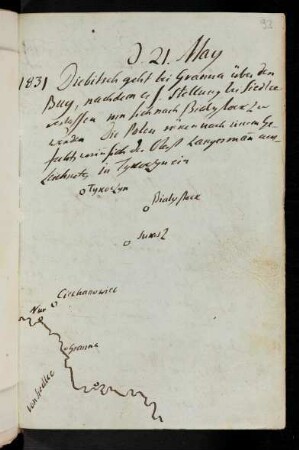 93
D. 21. May
1831 Diebitsch geht bei Granna über den
Bug, nachdem er s. Stellung bei Siedlce
verlassen um sich nach Bialystock zu
wenden Die Polen rücken nach einem Ge-
fecht worin sich d. Obrist Langermann aus-
zeichnete, in Tykoczyn ein
Tykoczyn
Bialystock
Suraz
Ciechanowiec
Nur
Granna
von Siedlce